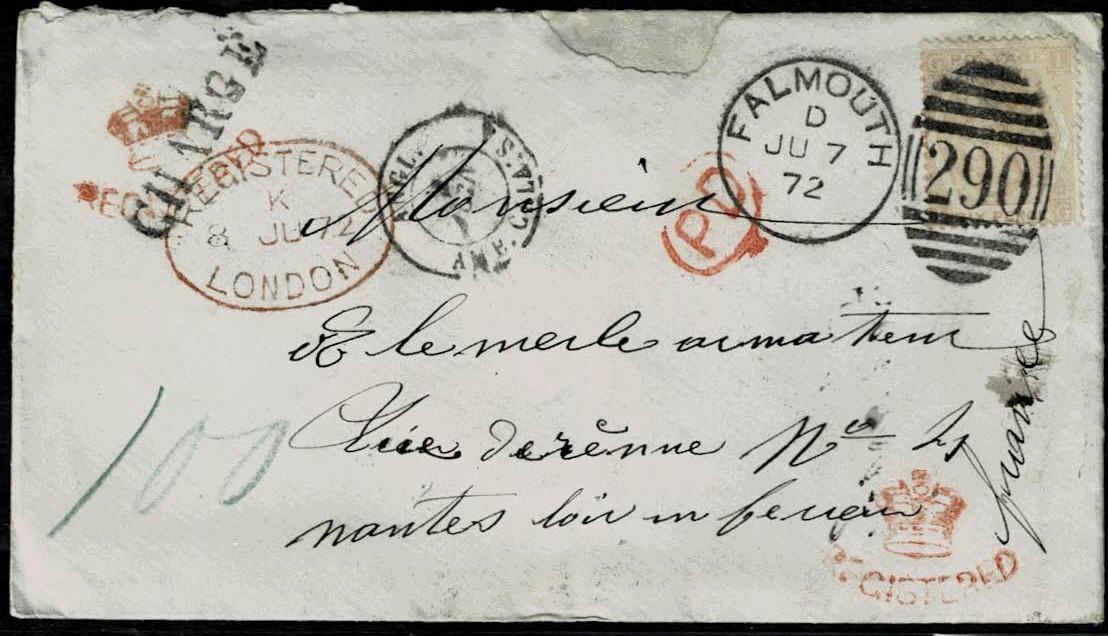 CHARGÉ
REGISTERED
REGISTERED
K
8 JU 72
LONDON
ANGL.
AMB. CALAIS
PD
FALMOUTH
D
JU 7
72
290
Monsieur
E lemerle armateur
Rue derênne No
nantes loir
REGISTERED